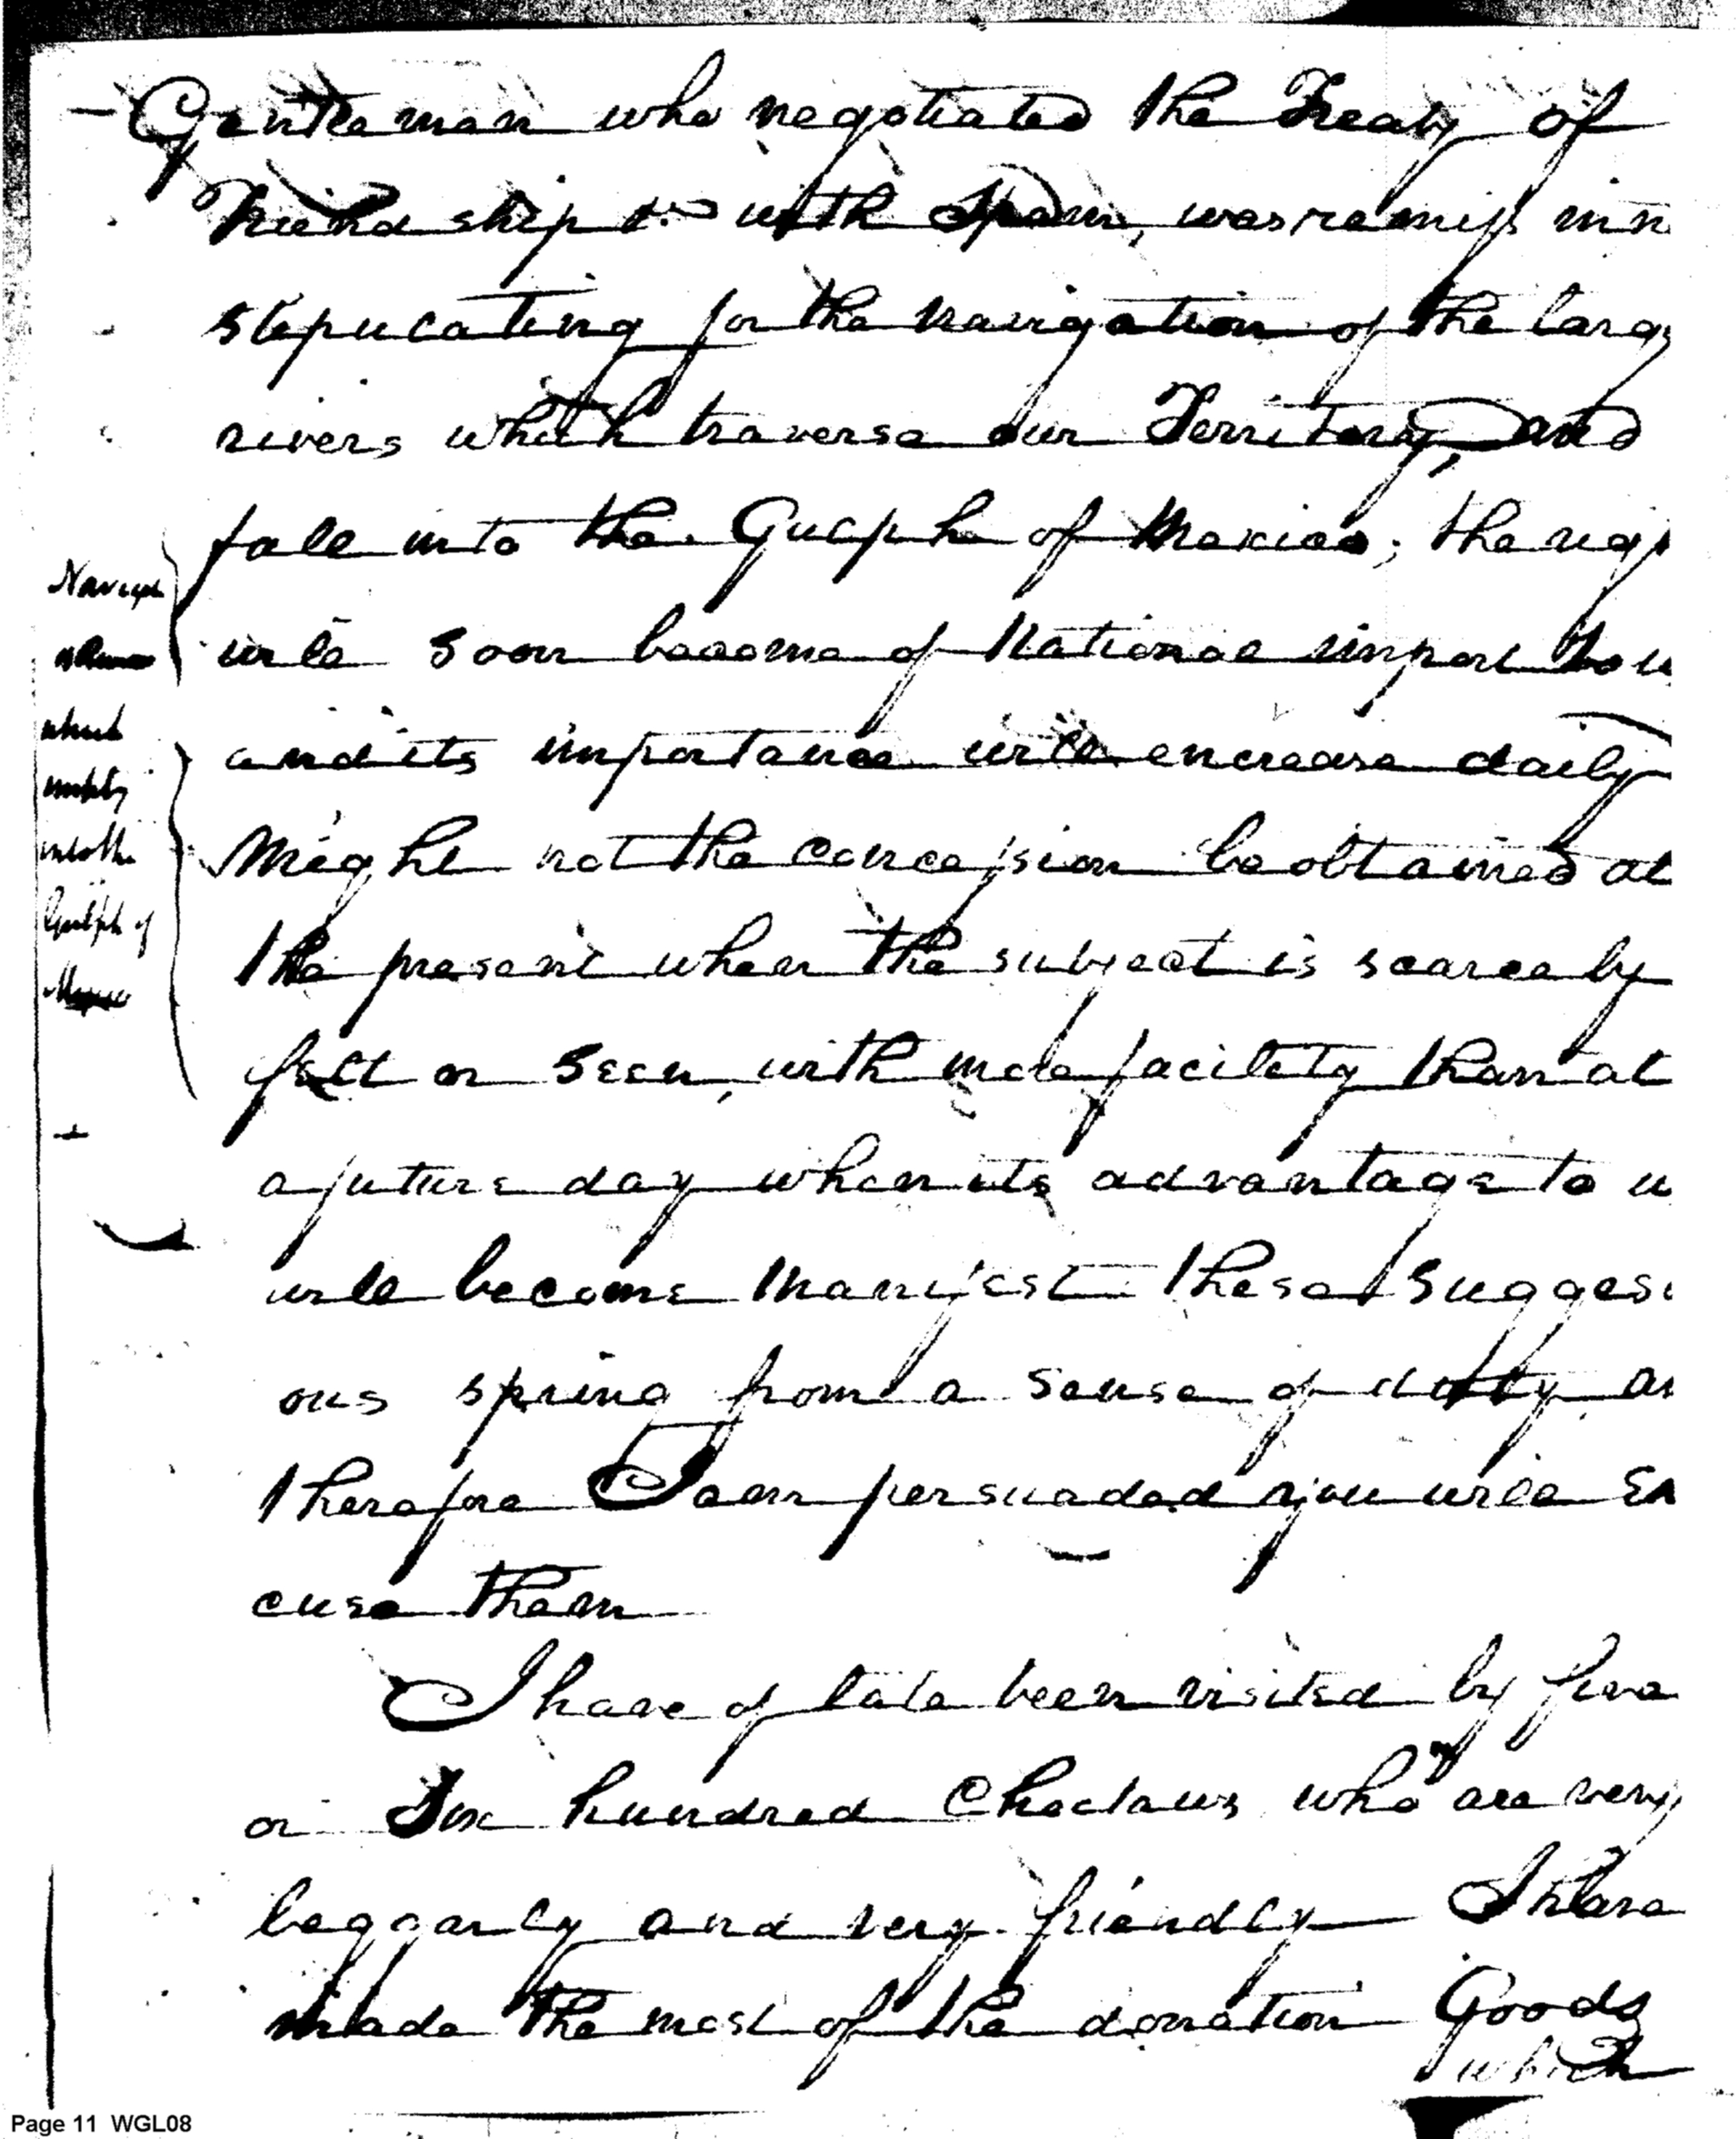 Gentleman who negotiated the Treaty of
Friendship &c with Spain, was remiss in n
stipulating for the navigation of the larg
rivers which traverse our Territory, and
fall into the Gulph of Mexico; the rig
will soon become of National import to u
and its importance will encrease daily
Might not the concession be obtained at
the present when the subject is scarcely
felt or seen, with more facility than at
a future day when its advantage to u
will become manifest These suggest
ons spring from a sense of duty an
therefore I am persuaded you will ex
cuse them
I have of late been visited by five
or Six hundred Choctaws who are very
beggarly and very friendly I have
made the most of the donation Goods
which
which
empty
into the
Gulph of
Mexico
Page 11 WGL08